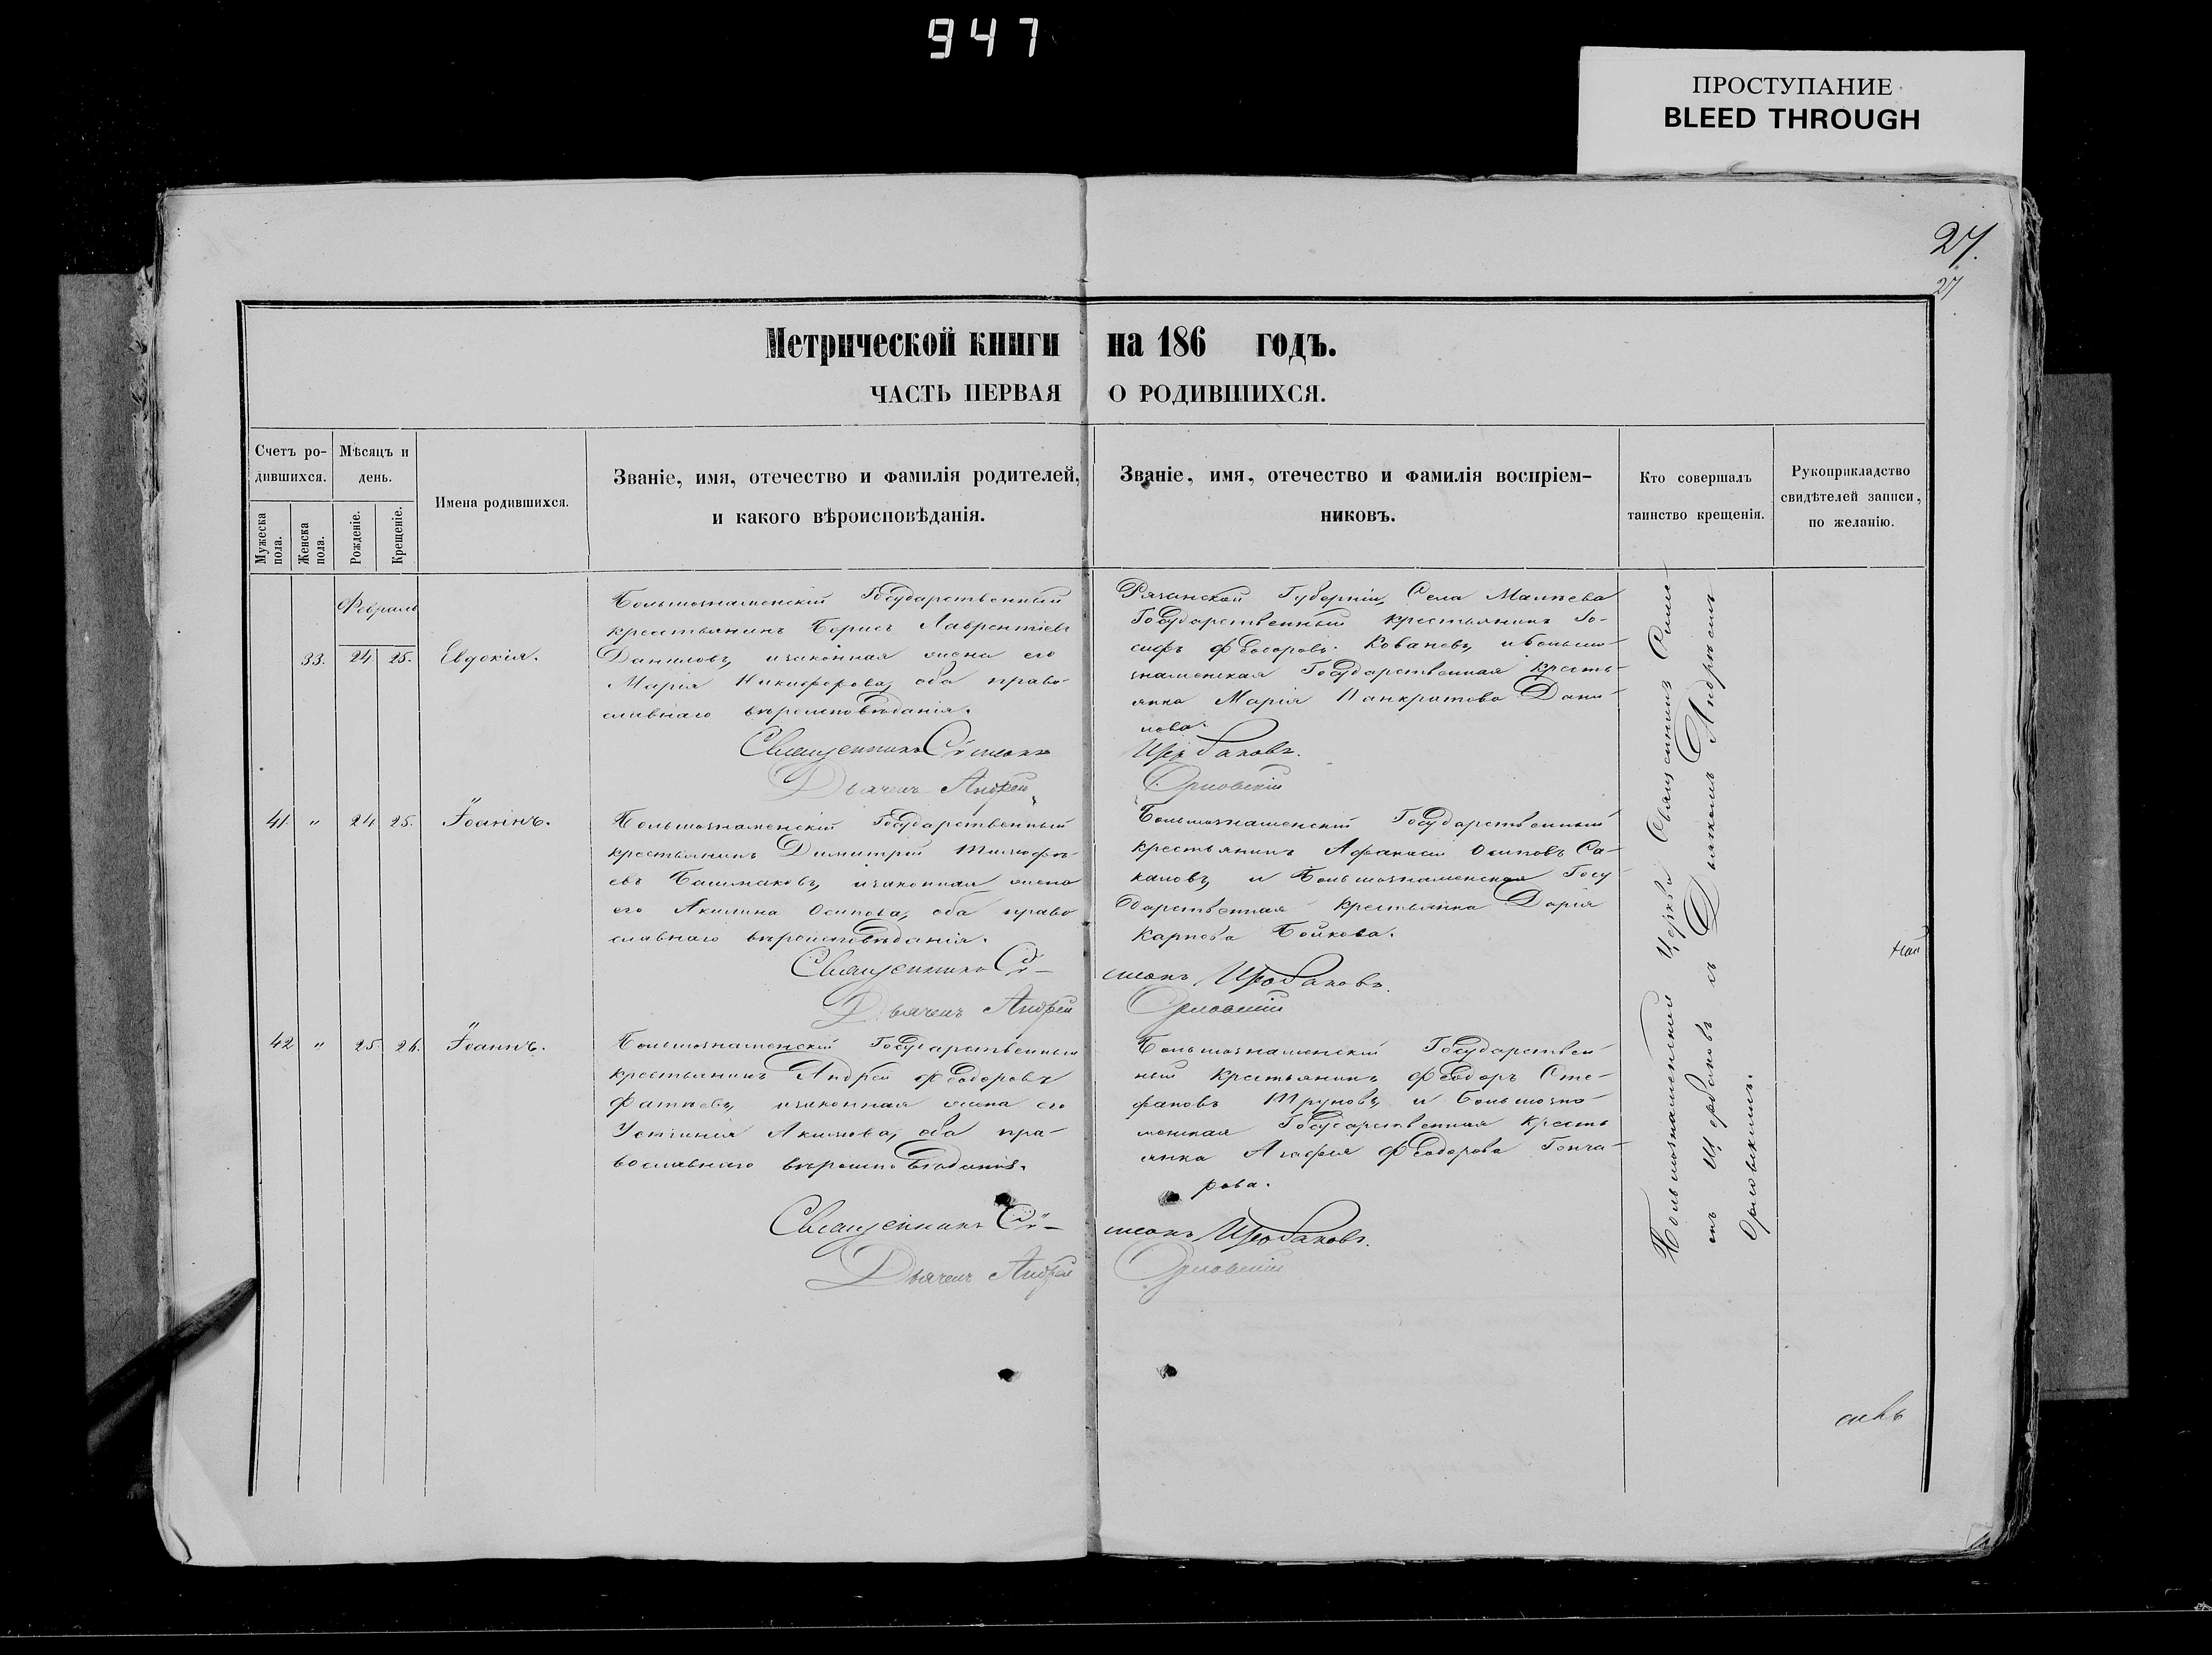 947
ПРОСТУПАНИЕ
BLEED THROUGH
27.
27
Метрической книги на 186 годъ.
ЧАСТЬ ПЕРВАЯ О РОДИВШИХСЯ.
Счетъ ро-
дившихся.
Мужеска пола.
Женска пола.
Мѣсяцъ и
день.
Рожденіе.
Крещеніе.
Имена родившихся.
Званіе, имя, отечество и фамилія родителей,
и какого вѣроисповѣданія.
Званіе, имя, отечество и фамилія воспріем-
никовъ.
Кто совершалъ
таинство крещенія.
Рукоприкладство
свидѣтелей записи,
по желанію.
Февраль
33. 24 25. Евдокія.
Большознаменскій Государственный
крестьянинъ Борисъ Лаврентіевъ
Даниловъ, и законная жена его
Марія Никифорова, оба право-
славнаго вѣроисповѣданія.
Священникъ Сѵмеонъ
Дьячекъ Андрей
Рязанской Губерніи, Села
Государственный крестьянинъ Іо-
сифъ Ѳеодоровъ и Больше-
знаменская Государственная кресть-
янка Марія Панкратова Дани-
лова.
Щербаковъ.
Орловскій
41. " 24 25. Іоаннъ.
Большознаменскій Государственный
крестьянинъ Димитрій Тимофѣ-
евъ Башмаковъ, и законная жена
его Акилина Осипова, оба право
славнаго вѣроисповѣданія.
Священникъ Сѵ-
Дьячекъ Андрей
Большознаменскій Государственный
крестьянинъ Афанасій Осиповъ Са-
каловъ, и Большознаменская Госу-
дарственная крестьянка Дарія
Карпова Бойкова.
меонъ Щербаковъ.
Орловскій
42 " 25. 26. Іоаннъ.
Большознаменскій Государственный
крестьянинъ Андрей Ѳеодоровъ
Фатѣевъ, и законная жена его
Устинія Акимова, оба пра-
вославнаго вѣроисповѣданія.
Священникъ Сѵ-
Дьячекъ Андрей
Большознаменскій Государствен-
ный крестьянинъ Ѳеодоръ Сте-
фановъ Труновъ, и Большозна-
менская Государственная кресть
янка Агафія Ѳеодорова Гонча-
рова.
меонъ Щербаковъ.
Орловскій
Большознаменской Церкви Священникъ Симе-
онъ Щербаковъ съ Дьячкомъ Андреемъ
Орловскимъ.